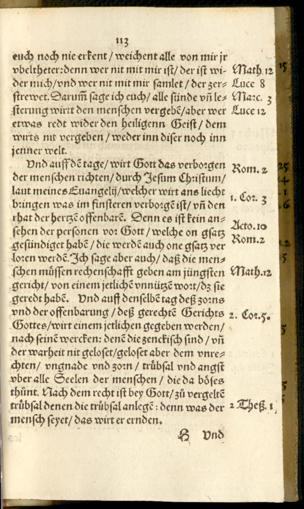 113
euch noch nie erkent / weichent alle von mir jr
vbeltheter: denn wer nit mit mir ist / der ist wi-
Math. 12
der mich / vnd wer nit mit mir samlet / der zer-
Luce 8
strewet. Darum̃ sage ich euch / alle sünde vñ le-
Marc. 3
sterung wirt den menschen vergebẽ / aber wer
Luce 12
etwas redt wider den heiligenn Geist / dem
wirts nit vergeben / weder inn diser noch inn
jenner welt.
Vnd auff dẽ tage / wirt Gott das verborgen
Rom. 2
der menschen richten / durch Jesum Christum /
laut meines Euangelij / welcher wirt ans liecht
1. Cor. 3
bringen was im finsteren verborgẽ ist / vñ den
rhat der hertzẽ offenbarẽ. Denn es ist kein an-
sehen der personen vor Gott / welche on gsatz
Acto. 10
gesündiget habẽ / die werdẽ auch one gsatz ver
Rom. 2
loren werdẽ. Ich sage aber auch / daß die men-
schen müssen rechenschafft geben am jüngsten
Math. 12
gericht / von einem jetlichẽ vnnützẽ wort / dz sie
geredt habẽ. Vnd auff denselbẽ tag deß zorns
vnd der offenbarung / deß gerechtẽ Gerichts
2. Cor. 5.
Gottes / wirt einem jetlichen gegeben werden /
nach seinẽ wercken: denẽ die zenckisch sind / vñ
der warheit nit geloset / geloset aber dem vnre-
chten / vngnade vnd zorn / trübsal vnd angst
vber alle Seelen der menschen / die da böses
thünt. Nach dem recht ist bey Gott / zů vergeltẽ
trübsal denen die trübsal anlegẽ: denn was der
2 Theß. 1
mensch seyet / das wirt er ernden.
H Vnd